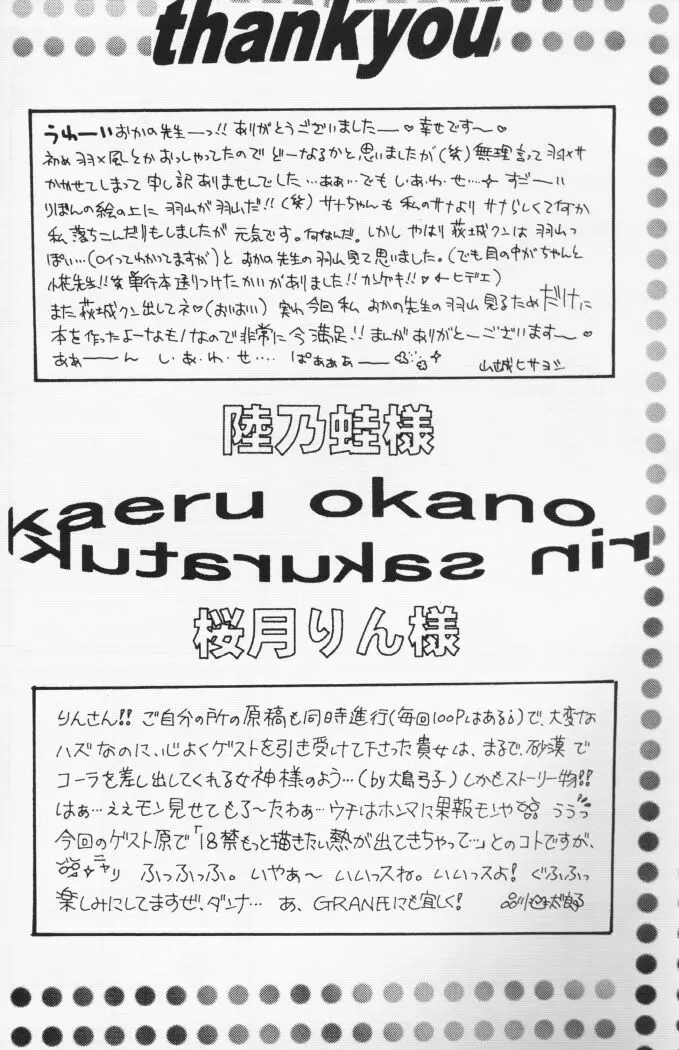 thankyou
うわーいおかの先生ーっ!! ありがとうございましたー♡幸せです〜♡
初め羽×風とかおっしゃってたのでどーなるかと思いましたが(笑)無理言って羽×サ
かかせてしまって申し訳ありませんでした…ああ…でもしあ・わ・せ…すごーい
りぼんの絵の上に羽山が羽山だ!!(笑)サナちゃんも私のサナよりサナらしくてなか
私落ちこんだりもしましたが元気です。何なんだ。しかしやはり萩城クンは羽山っ
ぽい…(ロイってわかってますが)とおかの先生の羽山見て思いました。(でも目の中がちゃんと
先生!! 単行本送りつけたかいがありました!!カンゲキ!!♡←ヒデエ)
また萩城クン出してネ♡(おいおい) 実わ今回私おかの先生の羽山見るためだけに
本を作ったよーなもんなので非常に今満足!!まんがありがとーございます〜♡
ああーーん し・あ・わ・せ…… ぱあああー 山城ヒサヨシ
陸乃蛙様
kaeru okano
rin sakuratuk
桜月りん様
りんさん!! ご自分の所の原稿も同時進行(毎回100Pはある)で、大変な
ハズなのに、心よくゲストを引き受けて下さった貴女は、まるで、砂漠で
コーラを差し出してくれる女神様のよう…(by大島弓子)しかもストーリー物!!
はぁ…ええモン見せてもろ〜たわぁ…ウチはホンマに果報モンや ううっ
今回のゲスト原で「18禁もっと描きたい熱が出てきちゃって…」とのコトですが、
ニヤリ ふっふっふ。いやぁ〜 いいっスね。いいっスよ! ぐふふっ
楽しみにしてますぜ、ダンナ… あ、GRANEにも宜しく!